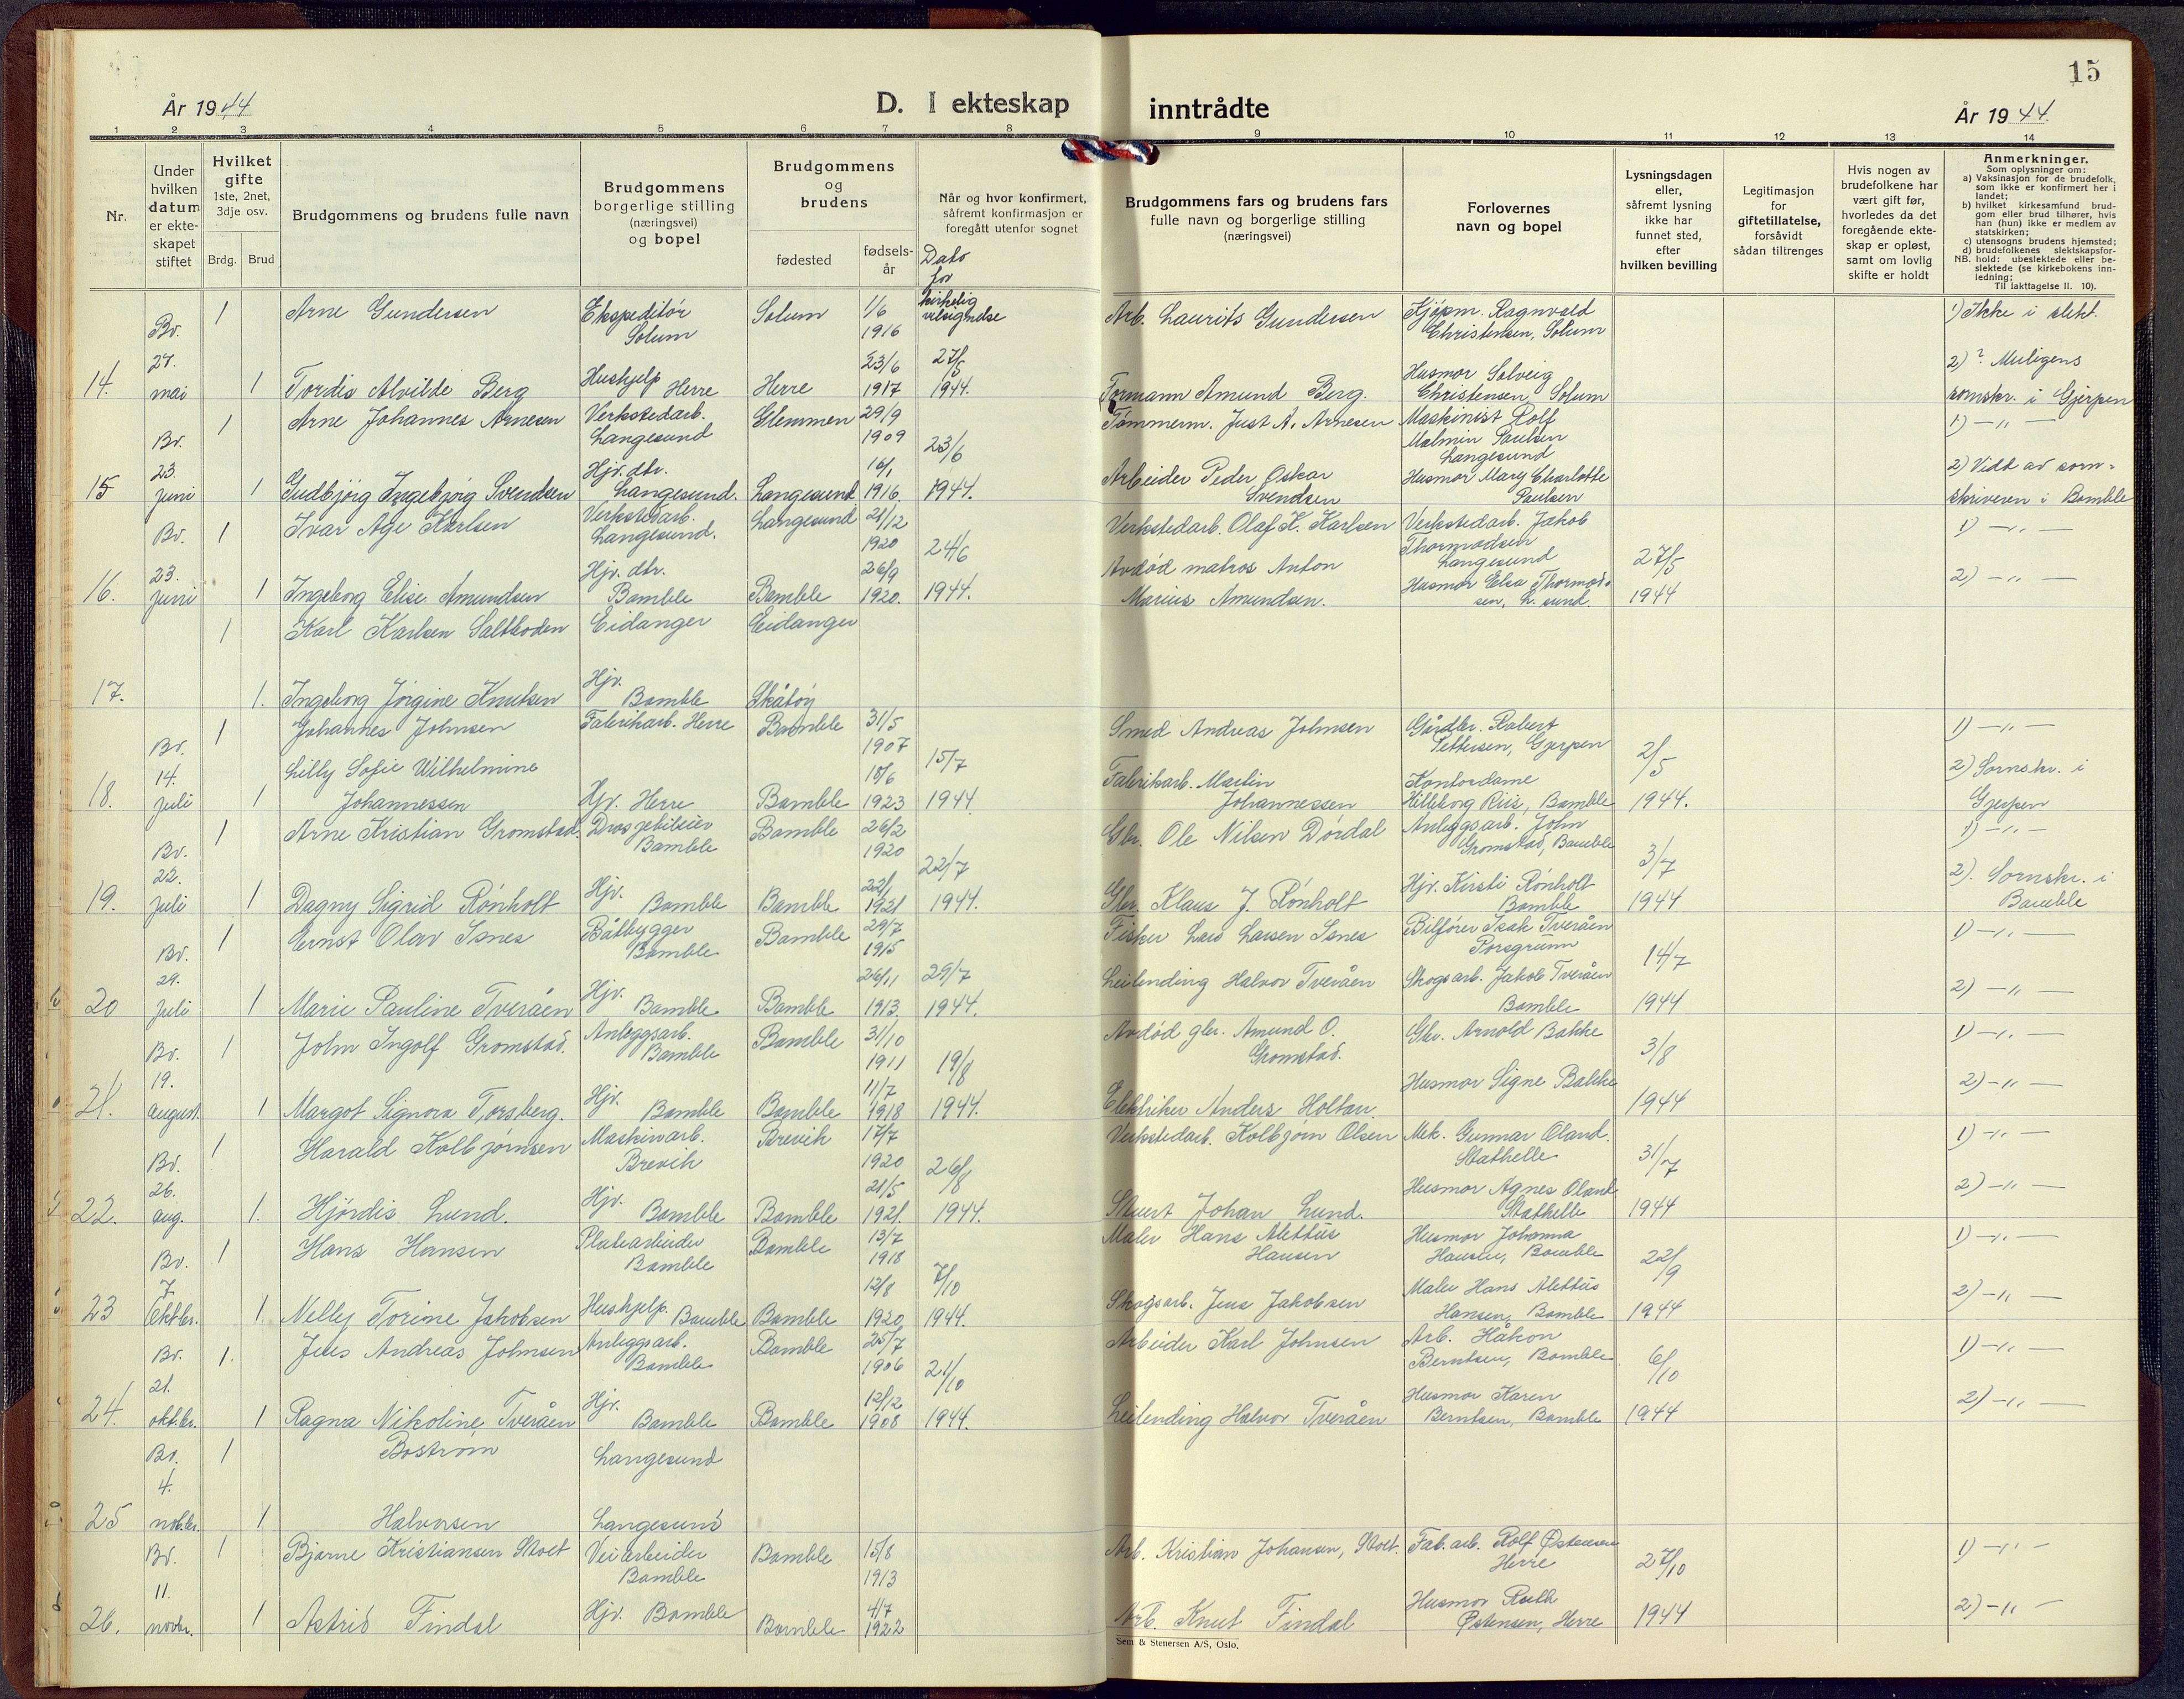 15
År 1944
D. I ekteskap inntrådte
År 1944.
1 2 3 4 5 6 7 8 9 10 11 12 13 14
Nr.
Under hvilken datum er ekteskapet stiftet
Hvilket gifte
1ste, 2net, 3dje osv.
Brdg. Brud
Brudgommens og brudens fulle navn
Brudgommens borgerlige stilling (næringsvei) og bopel
Brudgommens og brudens
fødested
fødselsår
Når og hvor konfirmert, såfremt konfirmasjon er foregått utenfor sognet
Dato for kirkelig velsignelse
Brudgommens fars og brudens fars fulle navn og borgerlige stilling (næringsvei)
Forlovernes navn og bopel
Lysningsdagen eller, såfremt lysning ikke har funnet sted, efter hvilken bevilling
Legitimasjon for giftetillatelse, forsåvidt sådan tiltrenges
Hvis nogen av brudefolkene har vært gift før, hvorledes da det foregående ekteskap er opløst, samt om lovlig skifte er holdt
Anmerkninger.
Som oplysninger om:
a) Vaksinasjon for de brudefolk, som ikke er konfirmert her i landet;
b) hvilket kirkesamfund brudgom eller brud tilhører, hvis han (hun) ikke er medlem av statskirken;
c) utensogns brudens hjemsted;
d) brudefolkenes slektskapsforhold: ubeslektede eller beslektede (se kirkebokens innledning;
NB.
Til iakttagelse II. 10).
Bv. 1 Arne Gundersen Ekspeditør Solum Solum 1/6 1916 Arb. Laurits Gundersen Kjøpm. Ragnvald Christensen, Solum 1) Ikke i slekt.
14. 27. mai 1 Tordis Alvilde Berg Hushjelp Herre Herre 23/6 1917 27/5 1944. Formann Amund Berg. Husmor Solveig Christensen Solum 2) ? Muligens sornskr. i Gjerpen
Bv. 1 Arne Johannes Arnesen Verkstedarb. Langesund Glemmen 29/9 1909 Tømmerm. Just A. Arnesen Maskinist Rolf Malmin Paulsen Langesund 1) —„—
15 23. juni 1 Gudbjørg Ingebjørg Svendsen Hjv. dtr. Langesund. Langesund 16/1 1916. 23/6 1944. Arbeider Peder Oskar Svendsen Husmor Mary Charlotte Paulsen 2) Vidt av sornskriveren i Bamble
Bv. 1 Ivar Åge Karlsen Verkstedarb. Langesund. Langesund 21/12 1920 Verkstedarb. Olaf K. Karlsen Verkstedarb. Jakob Thormodsen Langesund 1) —„—
16. 23. juni 1 Ingeborg Elise Amundsen Hjv. dtr. Bamble Bamble 26/9 1920. 24/6 1944. Avdød matros Anton Marius Amundsen. Husmor Elsa Thormodsen, L. sund. 27/5 1944 2) —„—
1 Karl Karlsen Saltboden Eidanger Eidanger
17. 1. Ingeborg Jørgine Knutsen Hjv. Bamble Skåtøy
Bv. 1 Johannes Johnsen Fabrikarb. Herre Bamble 31/5 1907 Smed Andreas Johnsen Gårdbr. Robert Pettersen, Gjerpen 1) —„—
18. 14. juli 1 Lilly Sofie Wilhelmine Johannessen Hjv. Herre Bamble 18/6 1923 15/7 1944 Fabrikarb. Martin Johannessen Kontordame Hilleborg Riis, Bamble 2/5 1944. 2) Sornskr. i Gjerpen
Bv. 1 Arne Kristian Gromstad. Drosjebileier Bamble Bamble 26/2 1920 Gbr. Ole Nilsen Dørdal Anleggsarb. John Gromstad, Bamble 1) —„—
19. 22. juli 1 Dagny Sigrid Rønholt Hjv. Bamble Bamble 22/1 1921 22/7 1944. Gbr. Klaus J. Rønholt Hjv. Kirsti Rønholt Bamble 3/7 1944 2). Sornskr. i Bamble
Bv. 1 Ernst Olav Isnes Båtbygger Bamble Bamble 29/7 1915 Fisker Lars Larsen Isnes Bilfører Isak Tveråen Porsgrunn 1) —„—
20 29. juli 1 Marie Pauline Tveråen Hjv. Bamble Bamble 26/11 1913. 29/7 1944. Leilending Halvor Tveråen Skogsarb. Jakob Tveråen Bamble 14/7 1944 2) —„—
Bv. 1 John Ingolf Gromstad. Anleggsarb. Bamble Bamble 31/10 1911 Avdød gbr. Amund O. Gromstad. Gbr. Arnold Bakke 1) —„—
21. 19. august. 1 Margot Signora Torsberg. Hjv. Bamble Bamble 11/7 1918 19/8 1944. Elektriker Anders Holtan. Husmor Signe Bakke 3/8 1944 2) —„—
Bv. 1 Harald Kolbjørnsen Maskinarb. Brevik Brevik 17/7 1920 Verkstedarb. Kolbjørn Olsen Mek. Gunnar Øland. Stathelle 1) —„—
22. 26. aug. 1. Hjørdis Lund. Hjv. Bamble Bamble 21/5 1921. 26/8 1944. Stuert Johan Lund. Husmor Agnes Øland Stathelle 31/7 1944 2) —„—
Bv. 1 Hans Hansen Platearbeider Bamble Bamble 13/7 1918 Maler Hans Alettus Hansen Husmor Johanna Hansen, Bamble 1) —„—
23 7. oktbr. 1 Nelly Torine Jakobsen Hushjelp. Bamble Bamble 12/8 1920 7/10 1944. Skogsarb. Jens Jakobsen Maler Hans Alettus Hansen, Bamble 22/9 1944 2) —„—
Bv. 1. Jens Andreas Johnsen Anleggsarb. Bamble Bamble 25/7 1906 Arbeider Karl Johnsen Arb. Håkon Berntsen, Bamble 1) —„—
24. 21. oktbr. 1 Ragna Nikoline Tveråen Hjv. Bamble Bamble 12/12 1908 21/10 1944. Leilending Halvor Tveråen Husmor Karen Berntsen, Bamble 6/10 1944 2) —„—
Bv. 1 Bostrøm Langesund
25 4. nobr. 1 Halvorsen Langesund
Bv. 1 Bjarne Kristiansen Stoet Veiarbeider Bamble Bamble 15/8 1913 Arb. Kristian Johansen, Stoet. Fab. arb. Rolf Østensen Herre 1) —„—
26. 11. novbr. 1 Astrid Findal Hjv. Bamble Bamble 4/7 1922 Arb. Knut Findal Husmor Ruth Østensen, Herre 27/10 1944 2) —„—
Sem & Stenersen A/S, Oslo.